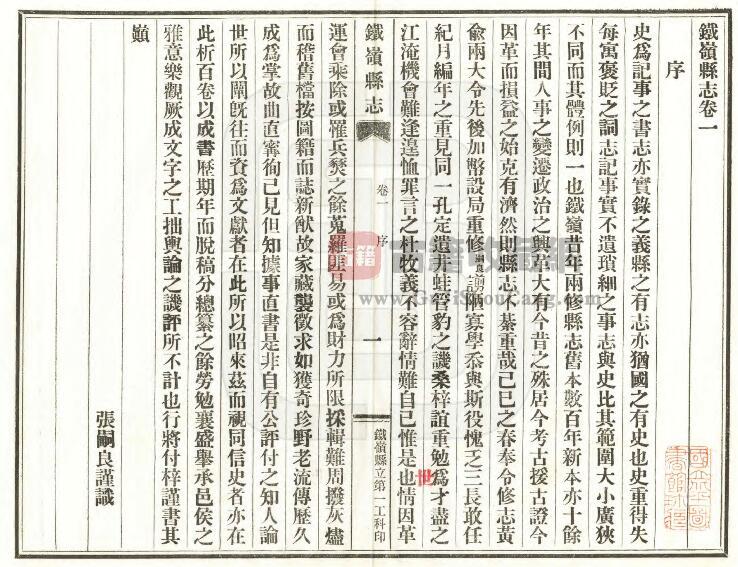 鐵嶺縣志卷一
序
史爲記事之書志亦實錄之義縣之有志亦猶國之有史也史重得失
每寓褒貶之詞志記事實不遺瑣細之事志與史比其範圍大小廣狹
不同而其體例則一也鐵嶺昔年兩修縣志舊本數百年新本亦十餘
年其間人事之變遷政治之興革大有今昔之殊居今考古援古證今
因革而損益之始克有濟然則縣志不綦重哉己巳之春奉令修志黃
俞兩大令先後加幣設局重修嗣良謭陋寡學忝與斯役愧乏三長敢任
紀月編年之重見同一孔定遺井蛙管豹之譏桑梓誼重勉爲才盡之
江淹機會難逢遑恤罪言之杜牧義不容辭情難自已惟是世也情因革
鐵嶺縣志
卷一 序
一
鐵嶺縣立第一工科印
運會乘除或罹兵燹之餘蒐羅匪易或爲財力所限採輯難周撥灰燼
而稽舊檔按圖籍而誌新猷故家藏襲徵求如獲奇珍野老流傳歷久
成爲掌故曲直寗徇己見但知據事直書是非自有公評付之知人論
世所以闡旣往而資爲文獻者在此所以昭來茲而視同信史者亦在
此析百卷以成書歷期年而脫稿分總纂之餘勞勉襄盛舉承邑侯之
雅意樂觀厥成文字之工拙輿論之譏評所不計也行將付梓謹書其
顚
張嗣良謹識
古籍收藏網
www.GujiShouCang.com